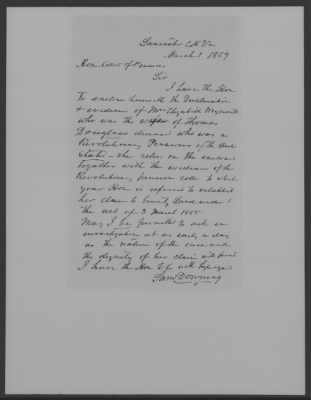 Lancaster C.H. Va
March 1 1859
Hon. Com. of Pensions
Sir
I have the Hon
to enclose herewith the Declaration
& evidence of Mrs Elizabeth
who was the widow of Thomas
Douglass deceased who was a
Revolutionary Pensioner of the
States - she relies on the enclosed
together with the evidence of the
Revolutionary pension role to which
your Hon is referred to establish
her claim to bounty Land under
the act of 3 March 1855
May I be permitted to ask an
investigation at as early a day
as the nature of the case and
the dignity of her claim will permit
I have the Hon
Downing